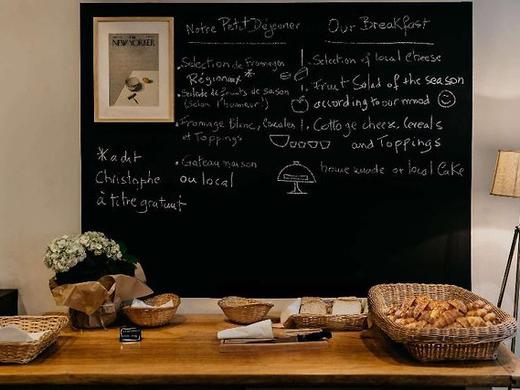 THE
NEW YORKER
Notre Petit Déjeuner
Selection de Fromages
Régionaux *
Salade de fruits de saison
(selon l'humeur!)
Fromage blanc, locales
et Toppings
Gateau maison
ou local
* a dit
Christophe
à titre gratuit
Our Breakfast
Selection of local cheese
Fruit Salad of the season
according to our mood
Cottage cheese, Cereals
and Toppings
home made or local Cake